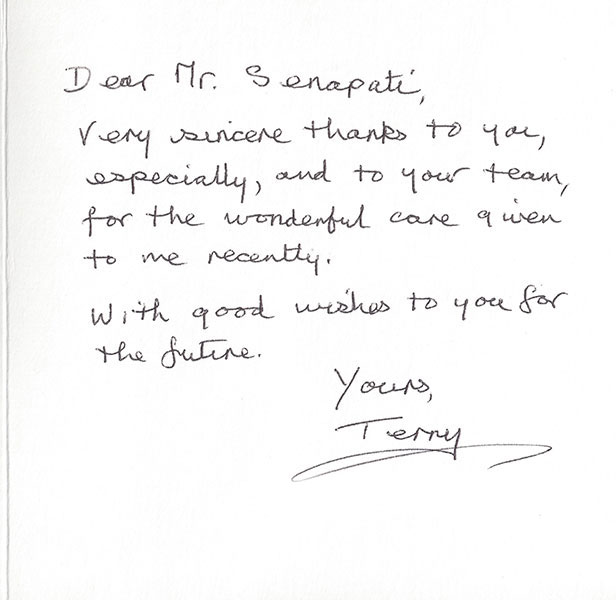 Dear Mr. Senapati,
Very sincere thanks to you,
especially, and to your team,
for the wonderful care given
to me recently.
With good wishes to you for
the future.
Yours,
Terry